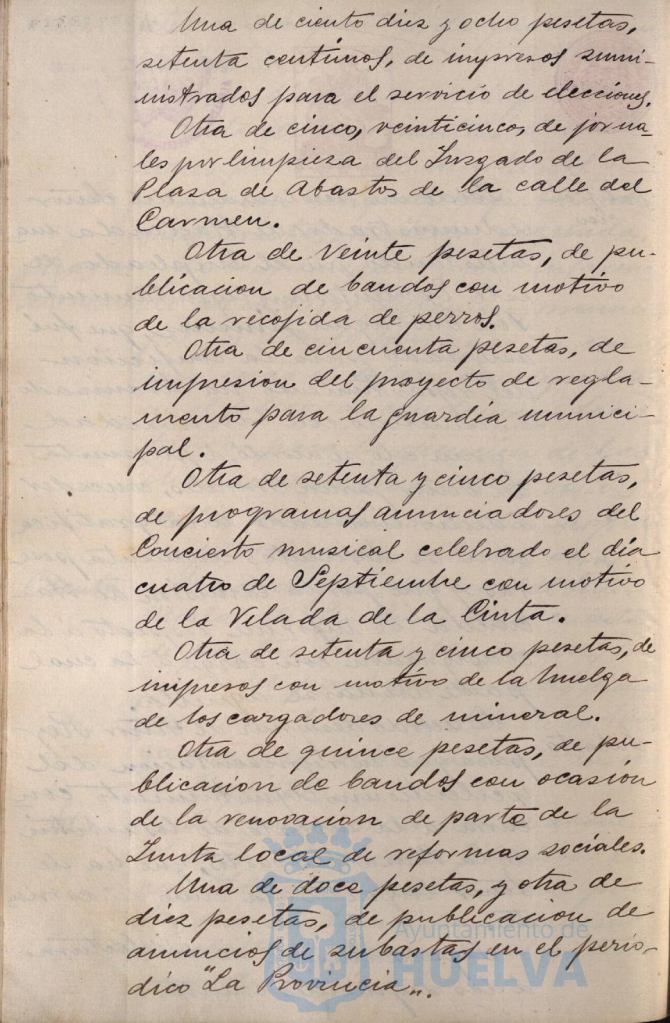 Una de ciento diez y ocho pesetas,
setenta centimos, de impresos sumi-
nistrados para el servicio de elecciones.
Otra de cinco, veinticinco, de jorna-
les por limpieza del Juzgado de la
Plaza de Abastos de la calle del
Carmen.
Otra de veinte pesetas, de pu-
blicacion de bandos con motivo
de la recojida de perros.
Otra de cincuenta pesetas, de
impresion del proyecto de regla-
mento para la guardia munici-
pal.
Otra de setenta y cinco pesetas,
de programas anunciadores del
Concierto musical celebrado el dia
cuatro de Septiembre con motivo
de la Velada de la Cinta.
Otra de setenta y cinco pesetas, de
impresos con motivo de la huelga
de los cargadores de mineral.
Otra de quince pesetas, de pu-
blicacion de bandos con ocasión
de la renovacion de parte de la
Junta local de reformas sociales.
Una de doce pesetas, y otra de
diez pesetas, de publicacion de
anuncios de subastas en el perió-
dico "La Provincia".
Ayuntamiento de
HUELVA